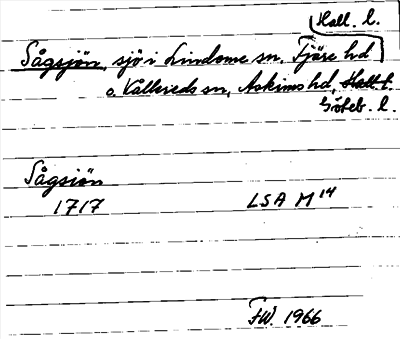 Hall. l.
Sågsjön, sjö i Lindome sn, Fjäre hd
o. Kållereds sn, Askims hd, Hall. l.
Göteb. l.
Sågsiön
1717 LSA M 14
FW. 1966